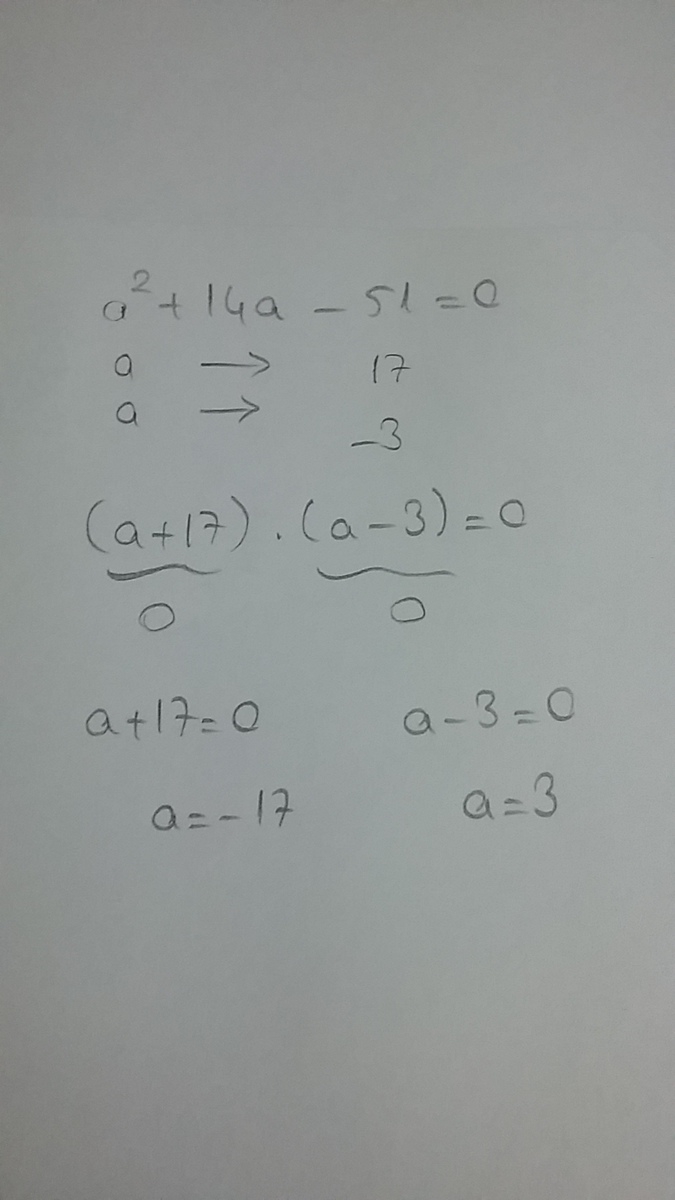 a² + 14a - 51 = 0
a → 17
a → -3
(a+17) . (a-3) = 0
0 0
a+17=0 a-3=0
a=-17 a=3